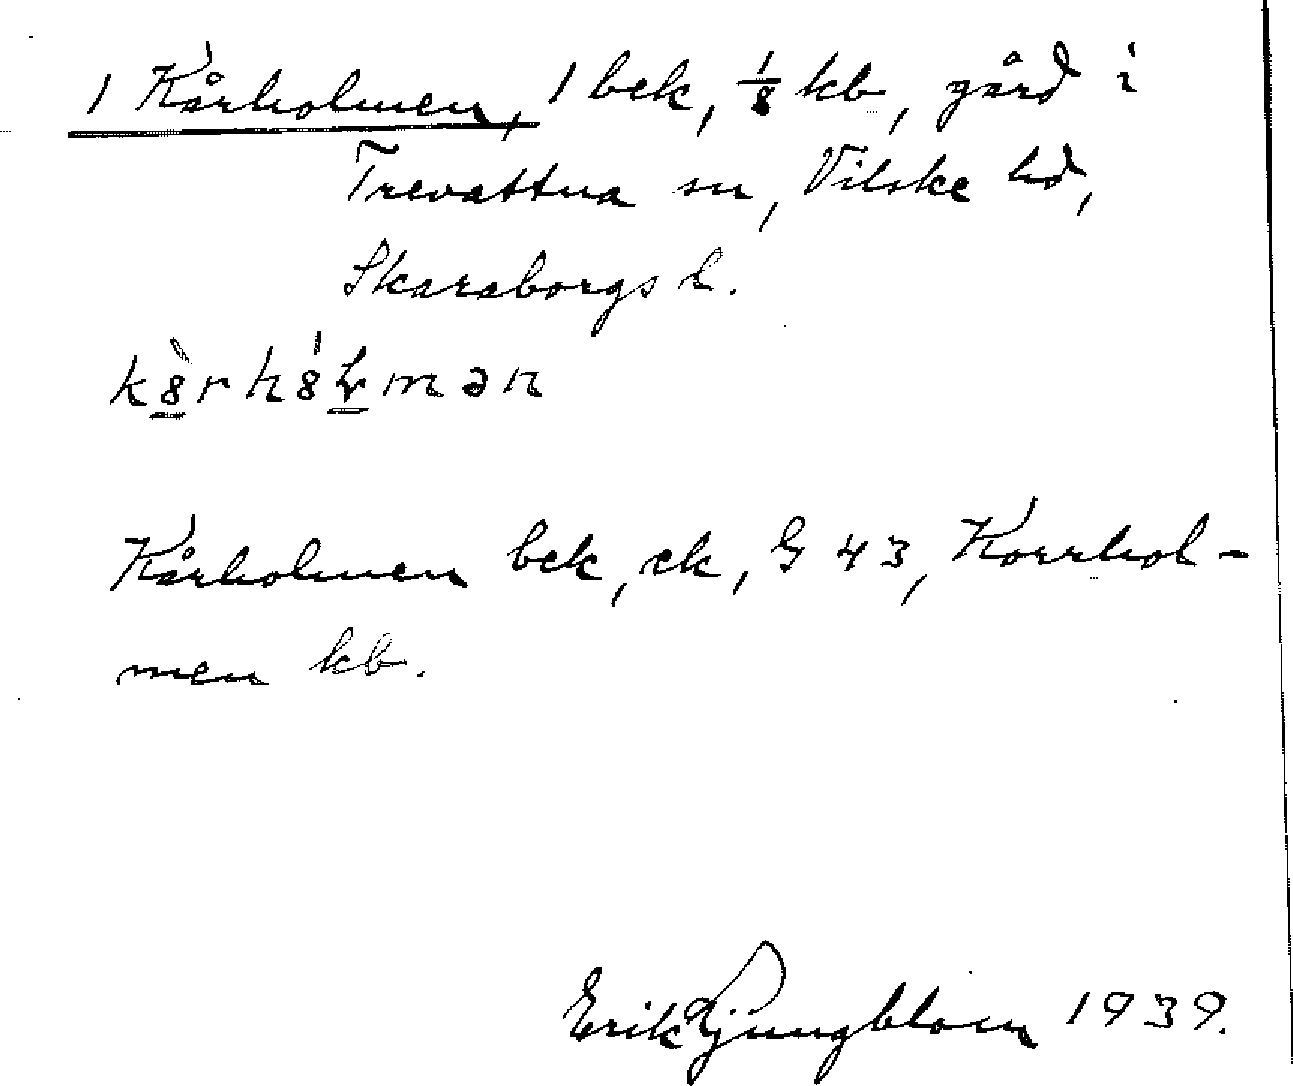 1 Kårholmen, 1 bek, 1/8 kb, gård i
Trevattna sn, Vilske hd,
Skaraborgs l.
Kårholmen bek, ek, G 43, Korrhol-
men kb.
Erik Ljungblom 1939.